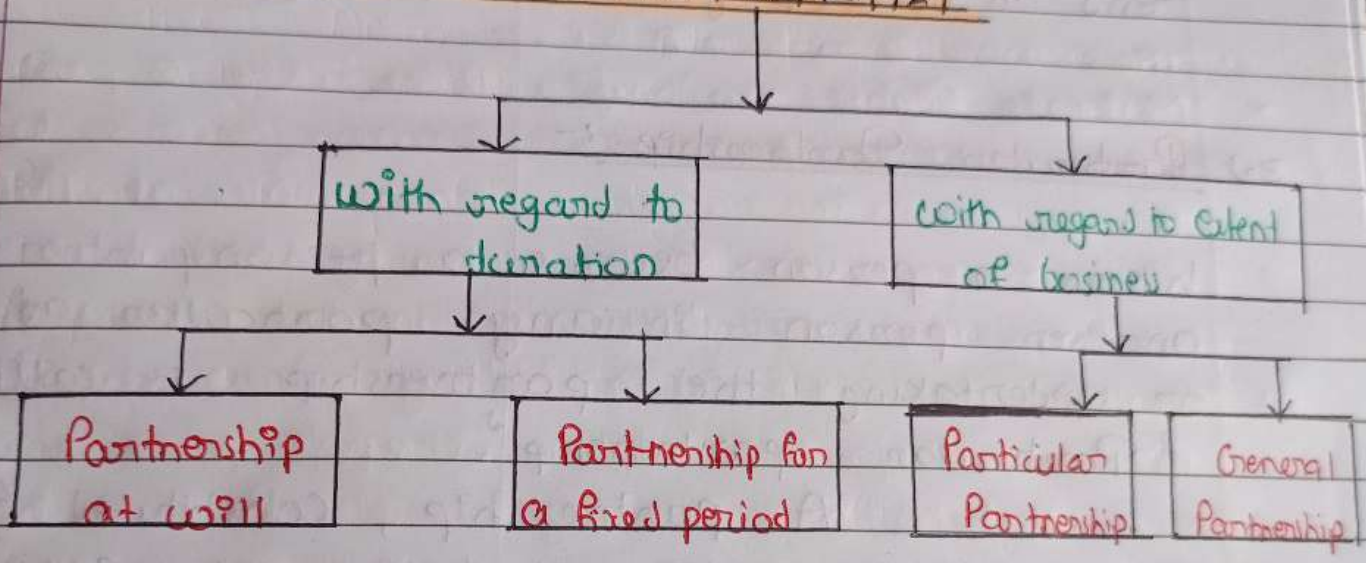 With regard to
duration
with regard to Extent
of business
Partnership
at will
Partnership for
a fixed period
Particular
Partnership
General
Partnership